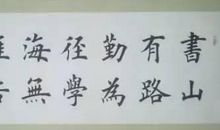 書山
有路
勤為
徑學
海無